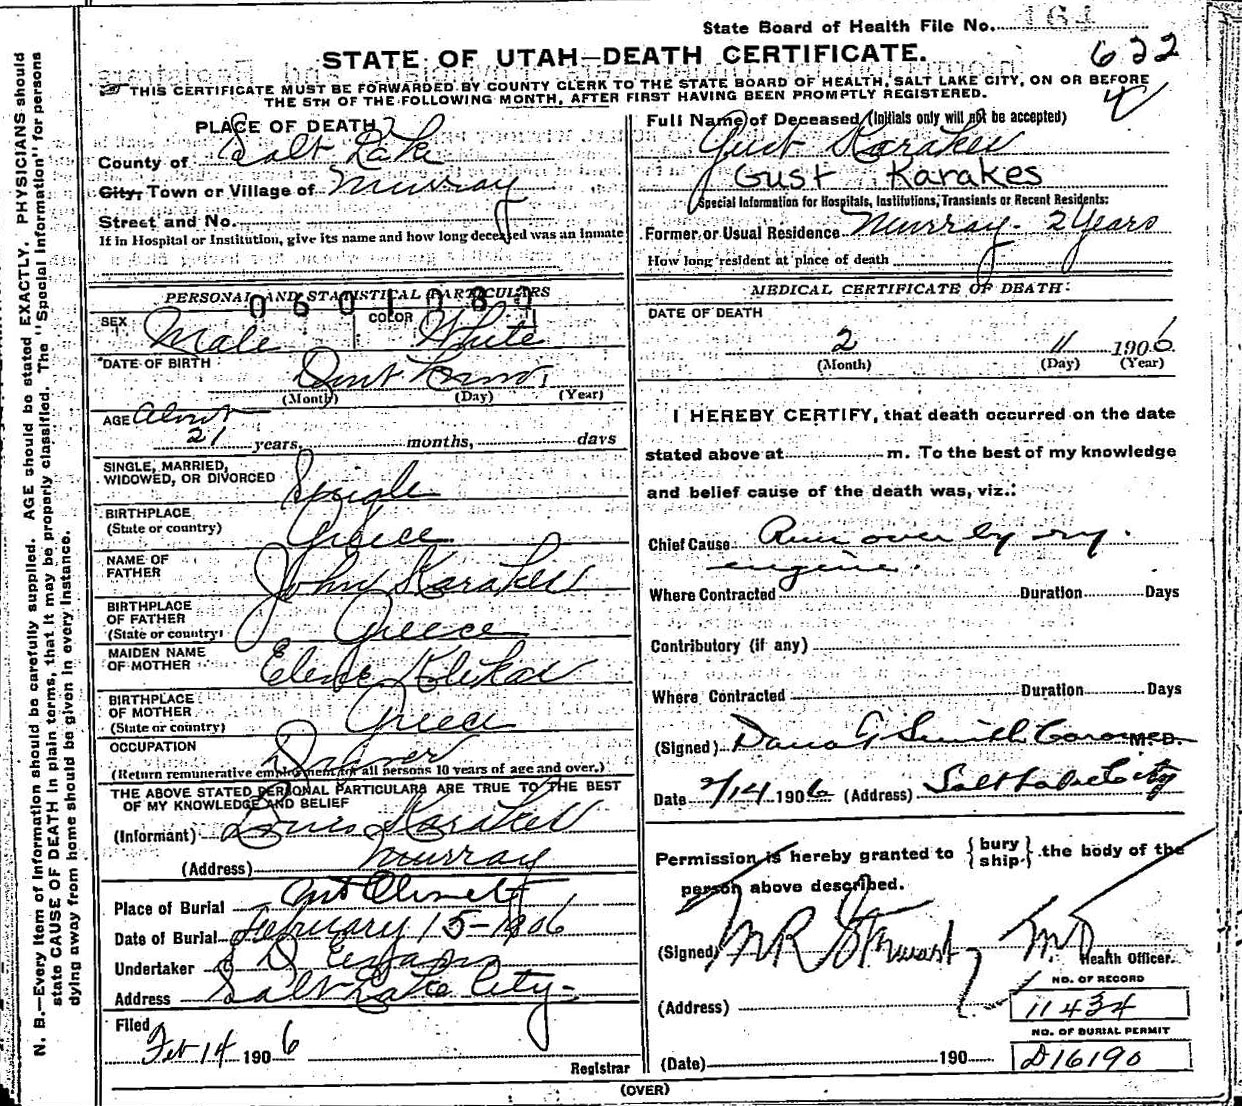 State Board of Health File No. 161
622
STATE OF UTAH—DEATH CERTIFICATE.
THIS CERTIFICATE MUST BE FORWARDED BY COUNTY CLERK TO THE STATE BOARD OF HEALTH, SALT LAKE CITY, ON OR BEFORE
THE 5TH OF THE FOLLOWING MONTH, AFTER FIRST HAVING BEEN PROMPTLY REGISTERED.
PLACE OF DEATH
County of Salt Lake
City, Town or Village of Murray
Street and No.
If in Hospital or Institution, give its name and how long deceased was an Inmate
PERSONAL AND STATISTICAL PARTICULARS
0601087
SEX Male COLOR White
DATE OF BIRTH Dont Know
(Month) (Day) (Year)
AGE About
21 years, months, days
SINGLE, MARRIED,
WIDOWED, OR DIVORCED Single
BIRTHPLACE
(State or country) Greece
NAME OF
FATHER John Karakes
BIRTHPLACE
OF FATHER
(State or country) Greece
MAIDEN NAME
OF MOTHER Elene
BIRTHPLACE
OF MOTHER
(State or country) Greece
OCCUPATION Laborer
(Return remunerative employment for all persons 10 years of age and over.)
THE ABOVE STATED PERSONAL PARTICULARS ARE TRUE TO THE BEST
OF MY KNOWLEDGE AND BELIEF
(Informant) Karakes
(Address) Murray
Place of Burial Mt Olivet
Date of Burial February 15-1906
Undertaker
Address Salt Lake City-
Filed
Feb 14 1906
Registrar
Full Name of Deceased (Initials only will not be accepted)
Gust Karakes
Gust Karakes
Special Information for Hospitals, Institutions, Transients or Recent Residents:
Former or Usual Residence Murray - 2 Years
How long resident at place of death
MEDICAL CERTIFICATE OF DEATH
DATE OF DEATH
2 11 1906
(Month) (Day) (Year)
I HEREBY CERTIFY, that death occurred on the date
stated above at m. To the best of my knowledge
and belief cause of the death was, viz.:
Chief Cause Run over by ry.
engine.
Where Contracted Duration Days
Contributory (if any)
Where Contracted Duration Days
(Signed) Dana T Smith Coroner M.D.
Date 2/14 1906 (Address) Salt Lake City
Permission is hereby granted to {bury
ship} the body of the
person above described.
(Signed) M R Stewart M.D.
Health Officer.
(Address)
NO. OF RECORD
11434
NO. OF BURIAL PERMIT
(Date) 190 D16190
(OVER)
N. B.—Every item of information should be carefully supplied. AGE should be stated EXACTLY. PHYSICIANS should
state CAUSE OF DEATH in plain terms, that it may be properly classified. The "Special Information" for persons
dying away from home should be given in every instance.